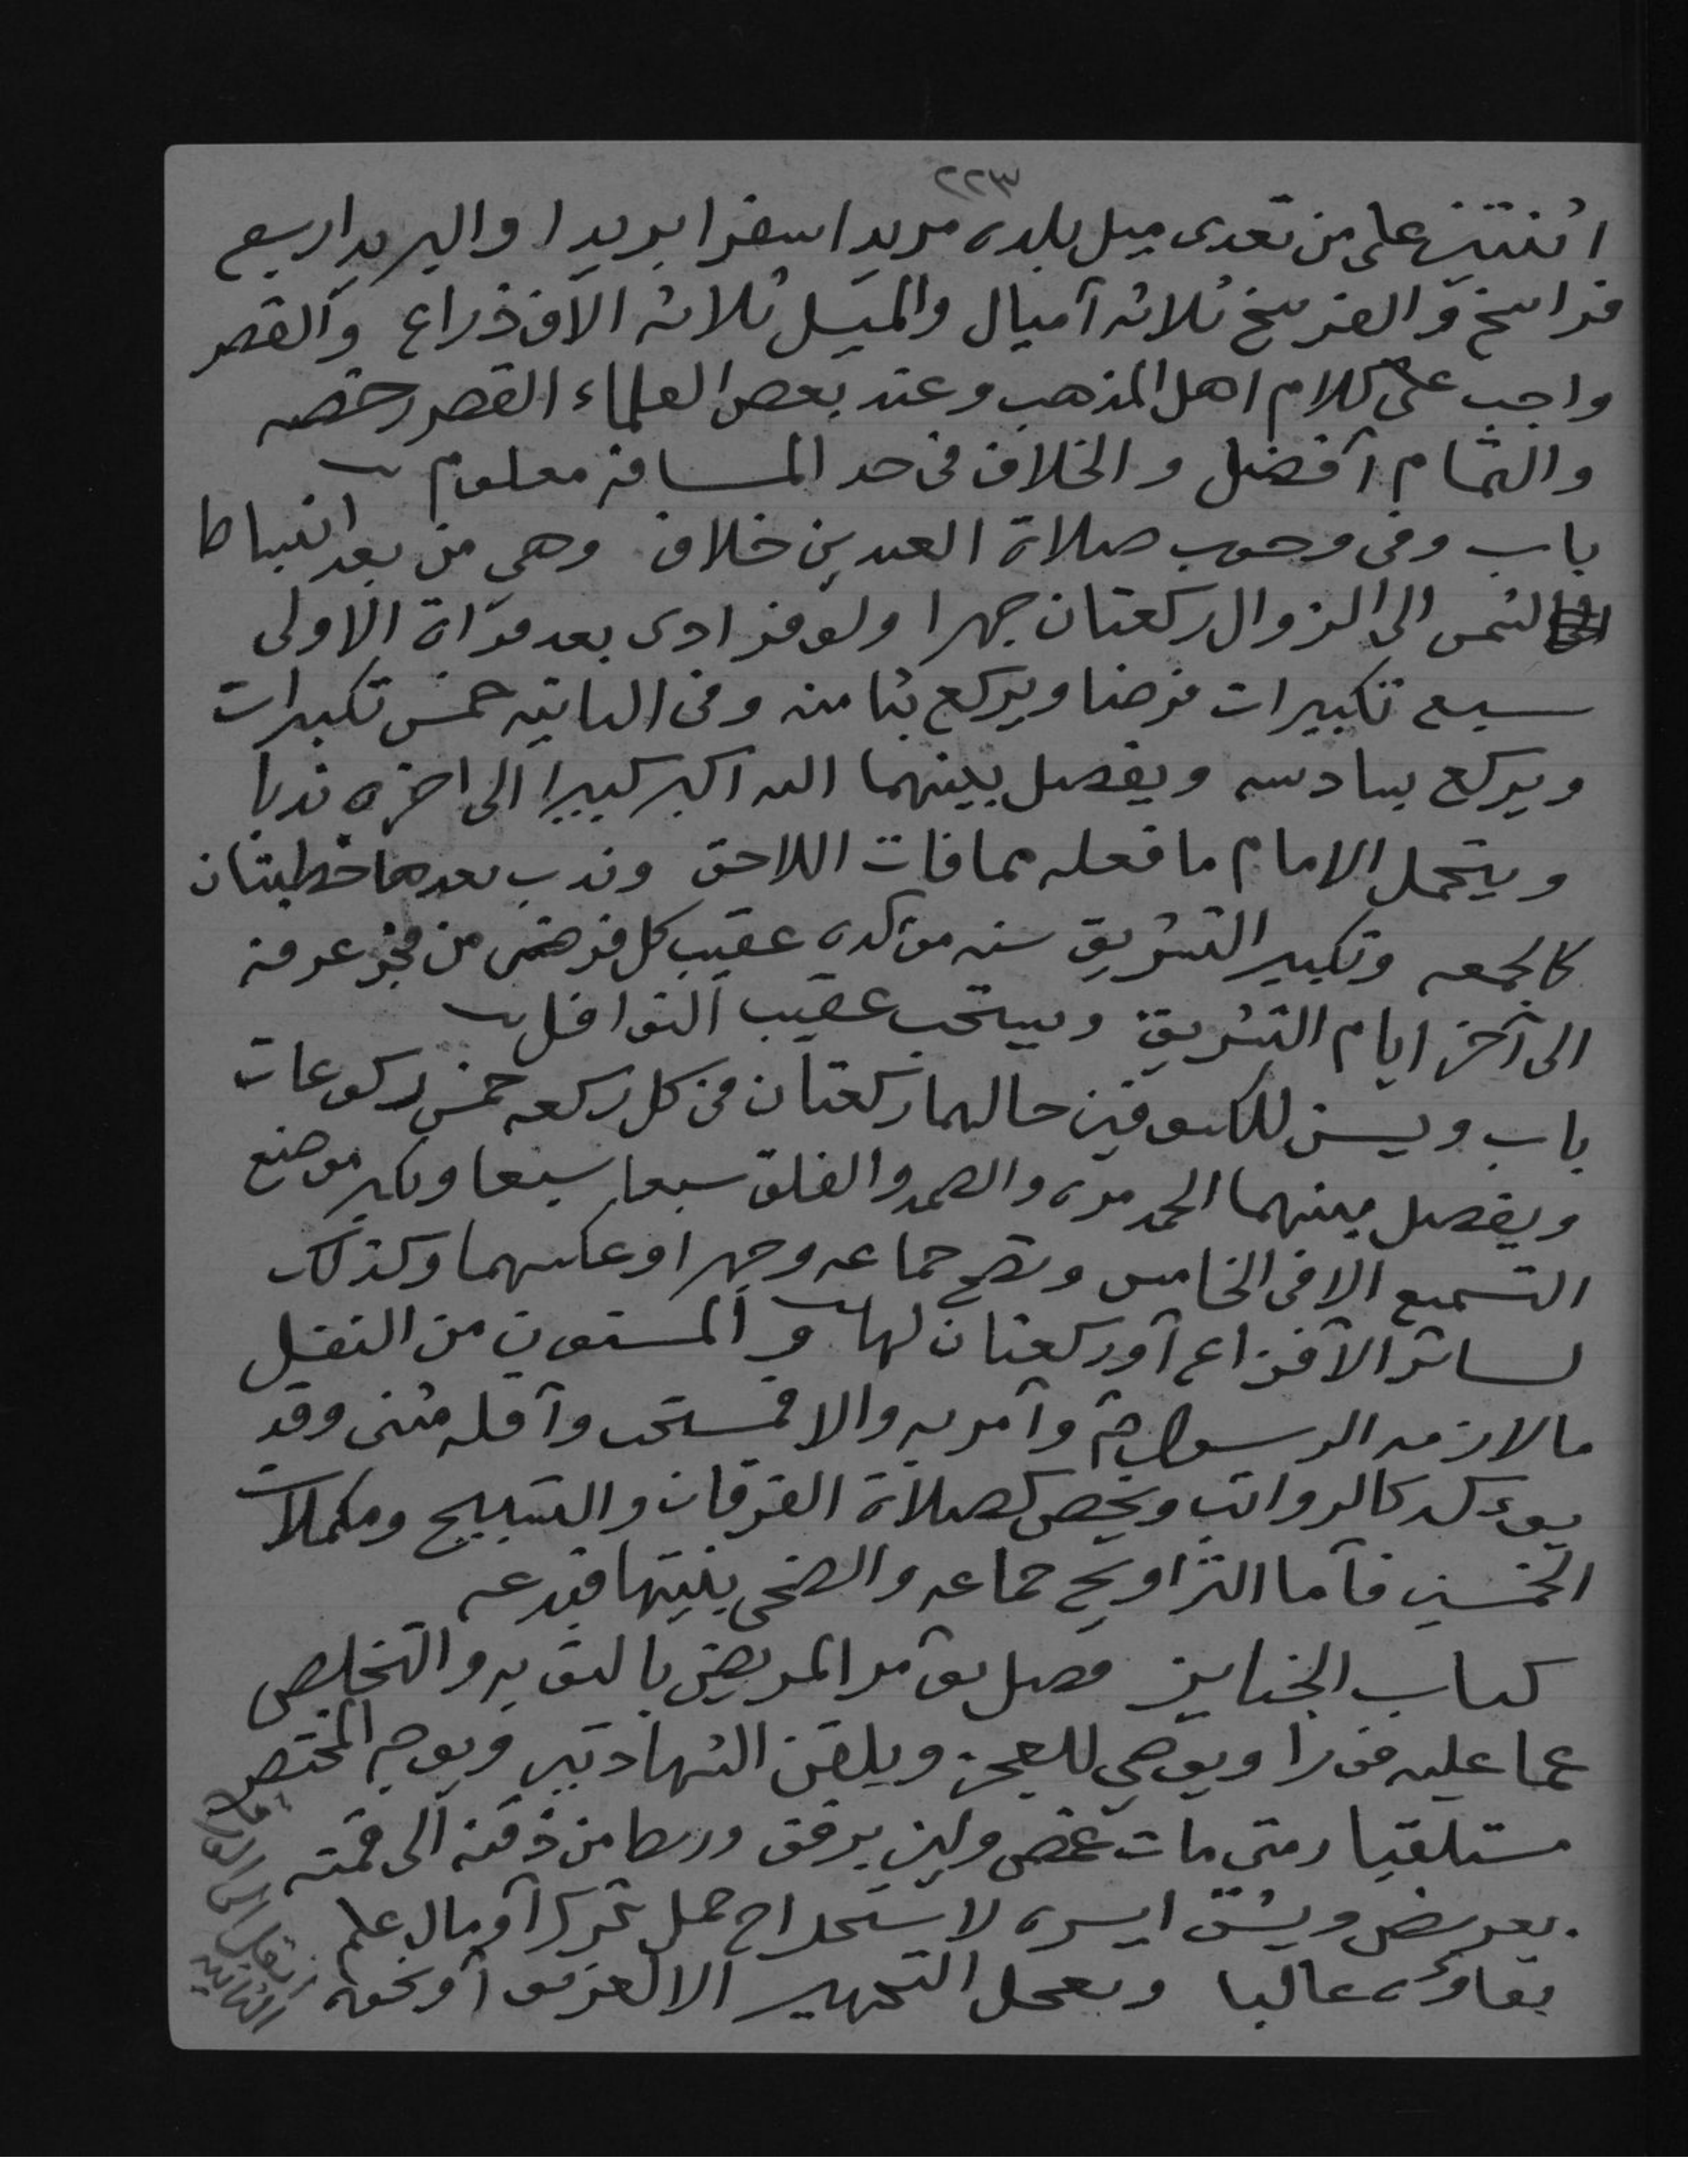 ٢٢٣
اثنتين على من تعدى ميل بلده مريدا سفرا بريدا والبريد اربع
فراسخ والفرسخ ثلاثه أميال والميل ثلاثه الاف ذراع والقصر
واجب على كلام اهل المذهب وعند بعض العلماء القصر رخصه
والتمام أفضل والخلاف فى حد المسافه معلوم
باب وفى وجوب صلاة العيدين خلاف وهي من بعد انبساط
الشمس الى الزوال ركعتان جهرا ولو فرادى بعد قراة الاولى
سبع تكبيرات فرضا ويركع بثامنه وفى الثانيه خمس تكبيرات
ويركع بسادسه ويفصل بينهما الله اكبر كبيرا الى اخره ندبا
ويتحمل الامام ما فعله مما فات اللاحق وندب بعدها خطبتان
كالجمعه وتكبير التشريق سنه مؤكده عقيب كل فرض من فجر عرفه
الى آخر ايام التشريق ويستحب عقيب النوافل
باب ويسن للكسوفين حالهما ركعتان فى كل ركعه خمس ركوعات
ويفصل بينهما الحمد مره والصمد والفلق سبعا سبعا ويكبر موضع
التسميع الا فى الخامس وتصح جماعه وجهرا وعكسهما وكذلك
لسائر الأفزاع أو ركعتان لها والمسنون من النفل
ما لازمه الرسول وأمر به والا فمستحب وأقله مثنى وقد
يؤكد كالرواتب ويخص كصلاة الفرقان والتسبيح ومكملات
الخمسين فأما التراويح جماعه والضحى بنيتها فبدعه
كتاب الجنايز فصل يؤمر المريض بالتوبه والتخلص
عما عليه فورا ويوصي للعجز ويلقن الشهادتين ويوجه المحتضر
مستلقيا ومتى مات غمض ولين برفق وربط من ذقنه الى قمته
بعريض ويشق ايسره لاستخراج حمل تحرك أو مال علم
بقاؤه غالبا ويعجل التجهيز الا لغرق أو نحوه
انقل الى الورقه
الثانيه